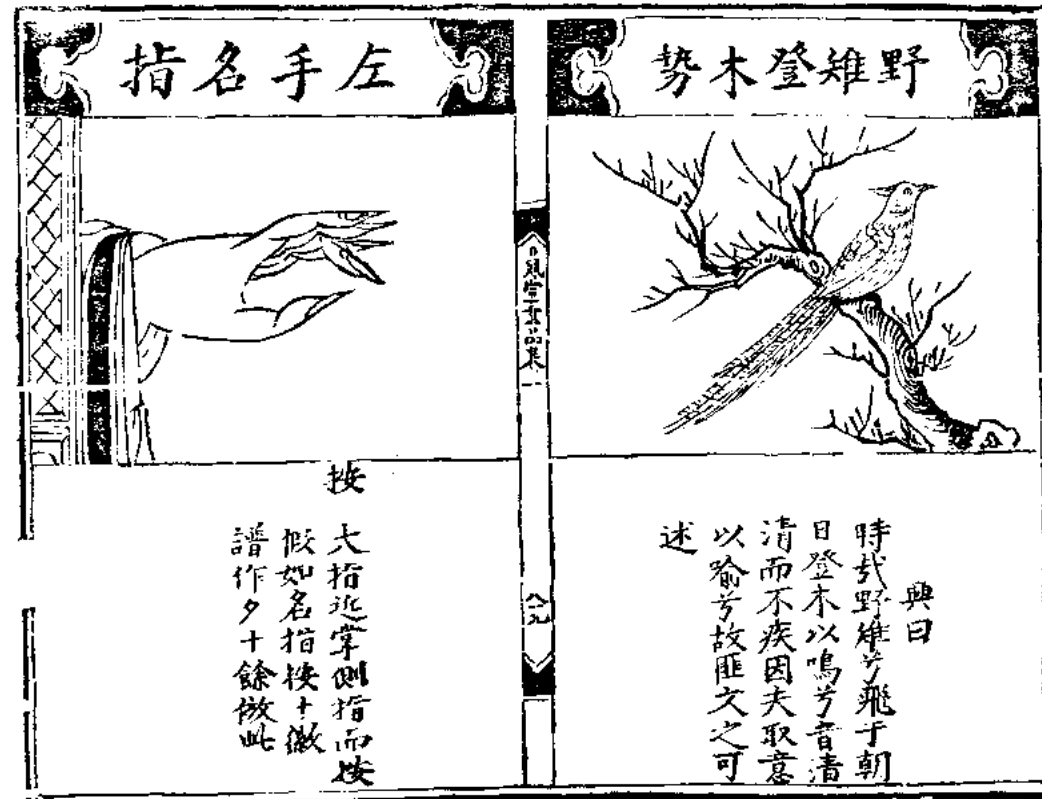 野雉登木勢
興曰
時哉野雉兮飛于朝
日登木以鳴兮音清
清而不疾因夫取意
以喻兮故匪文之可
述
左手名指
按
大指近掌側指而按
假如名指按十徽
譜作夕十餘倣此